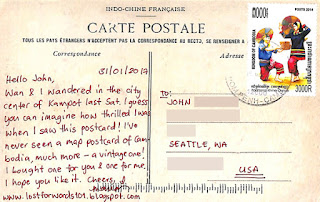 INDO-CHINE FRANÇAISE
CARTE POSTALE
TOUS LES PAYS ÉTRANGERS N'ACCEPTENT PAS LA CORRESPONDANCE AU RECTO, SE RENSEIGNER A
Correspondance
Adresse
31/01/2017
Hello John,
Wan & I wandered in the city
center of Kampot last Sat. I guess
you can imagine how thrilled I was
when I saw this postcard! I've
never seen a map postcard of Cam-
bodia, much more – a vintage one!
I bought one for you & one for me.
I hope you like it. Cheers,
www.lostforwords101.blogspot.com
TO:
JOHN
SEATTLE, WA
USA
3000R